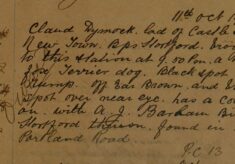 11th Oct 1
Claud Dymock. Lad of Castle
New Town. Bps Stortford. bro
to this station at 9.00 p.m. a
fox Terrier dog. Black spot
Rump. off Ear Brown. and
spot over near eye. has a co
on. with A. J. Barham Bi
Stortford thereon. found in
Portland Road
P.C 13